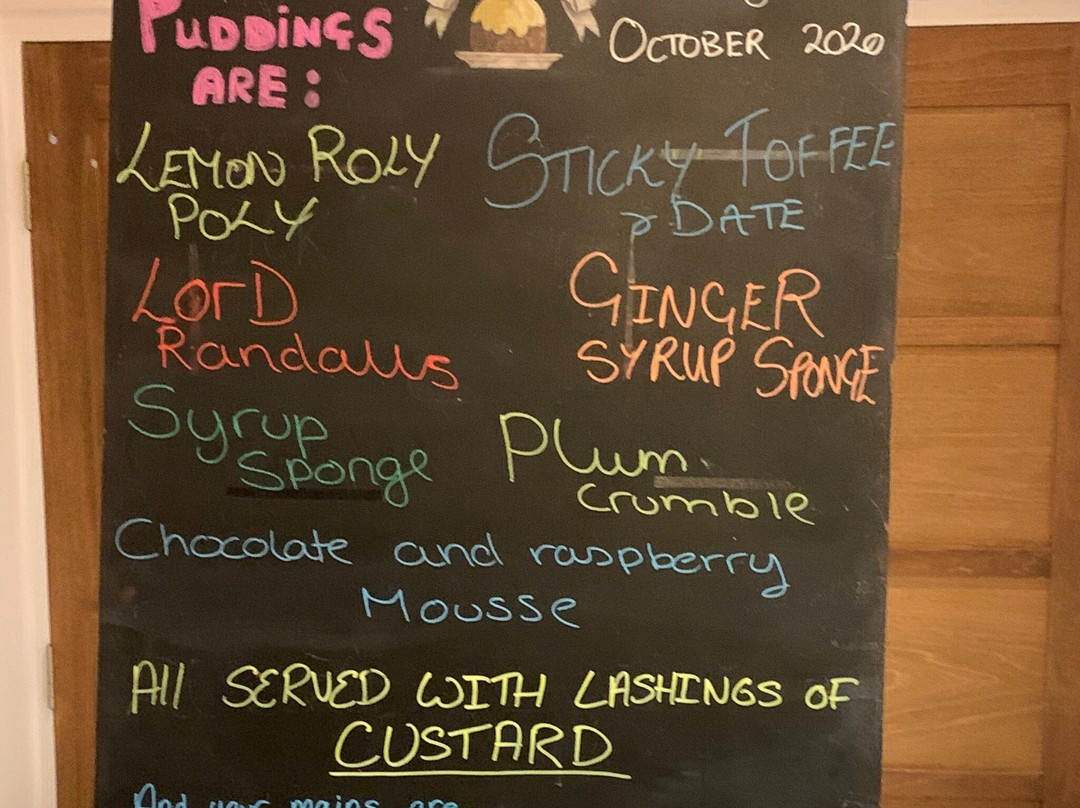 PUDDINGS
ARE:
OCTOBER 2020
LEMON ROLY
POLY
STICKY TOFFEE
& DATE
LorD
Randalls
GINGER
SYRUP SPONGE
Syrup
Sponge
Plum
crumble
Chocolate and raspberry
Mousse
All SERVED WITH LASHINGS OF
CUSTARD
And your mains are